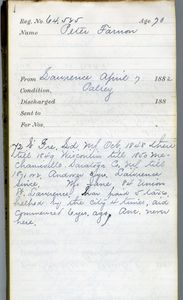 Reg. No. 64,525 Age 70
Name Peter Farnon
From Lawrence April 7 1882
Condition, Palsey
Discharged 188
Sent to
For Nos.
72 W. Ire. Ld. NY Oct, 1848 there
till 1849 Wisconsin till 1850 Me-
chanicville. Saratoga Co, NY till
1871, or 2, Andover 2 yrs, Lawrence
since. W. Jane, 84 Union
St. Lawrence. Has paid taxes,
helped by the city 4 times, aid
commenced 2 yrs, ago, Anc. never
here.